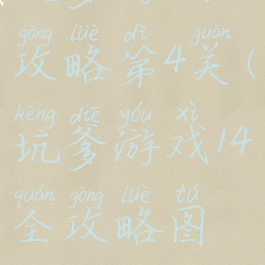 gōng lüè dì guān
攻略第4关(
kēng diē yóu xì
坑爹游戏14
quán gōng lüè tú
全攻略图